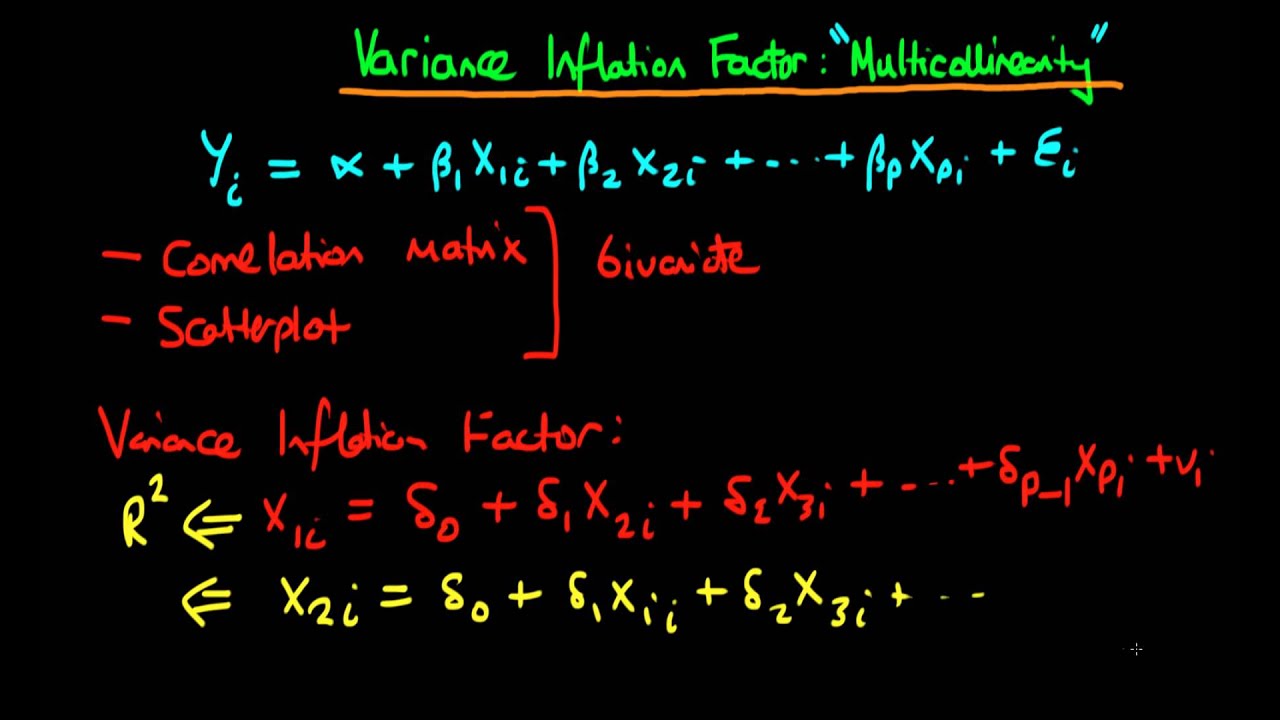 Variance Inflation Factor: "Multicollinearity"
Yᵢ = α + β₁X₁ᵢ + β₂X₂ᵢ + ... + βₚXₚᵢ + εᵢ
— Correlation Matrix
bivariate
— Scatterplot
Variance Inflation Factor:
R² ⇐ X₁ᵢ = δ₀ + δ₁X₂ᵢ + δ₂X₃ᵢ + ... + δₚ₋₁Xₚᵢ + vᵢ
⇐ X₂ᵢ = δ₀ + δ₁X₁ᵢ + δ₂X₃ᵢ + ...